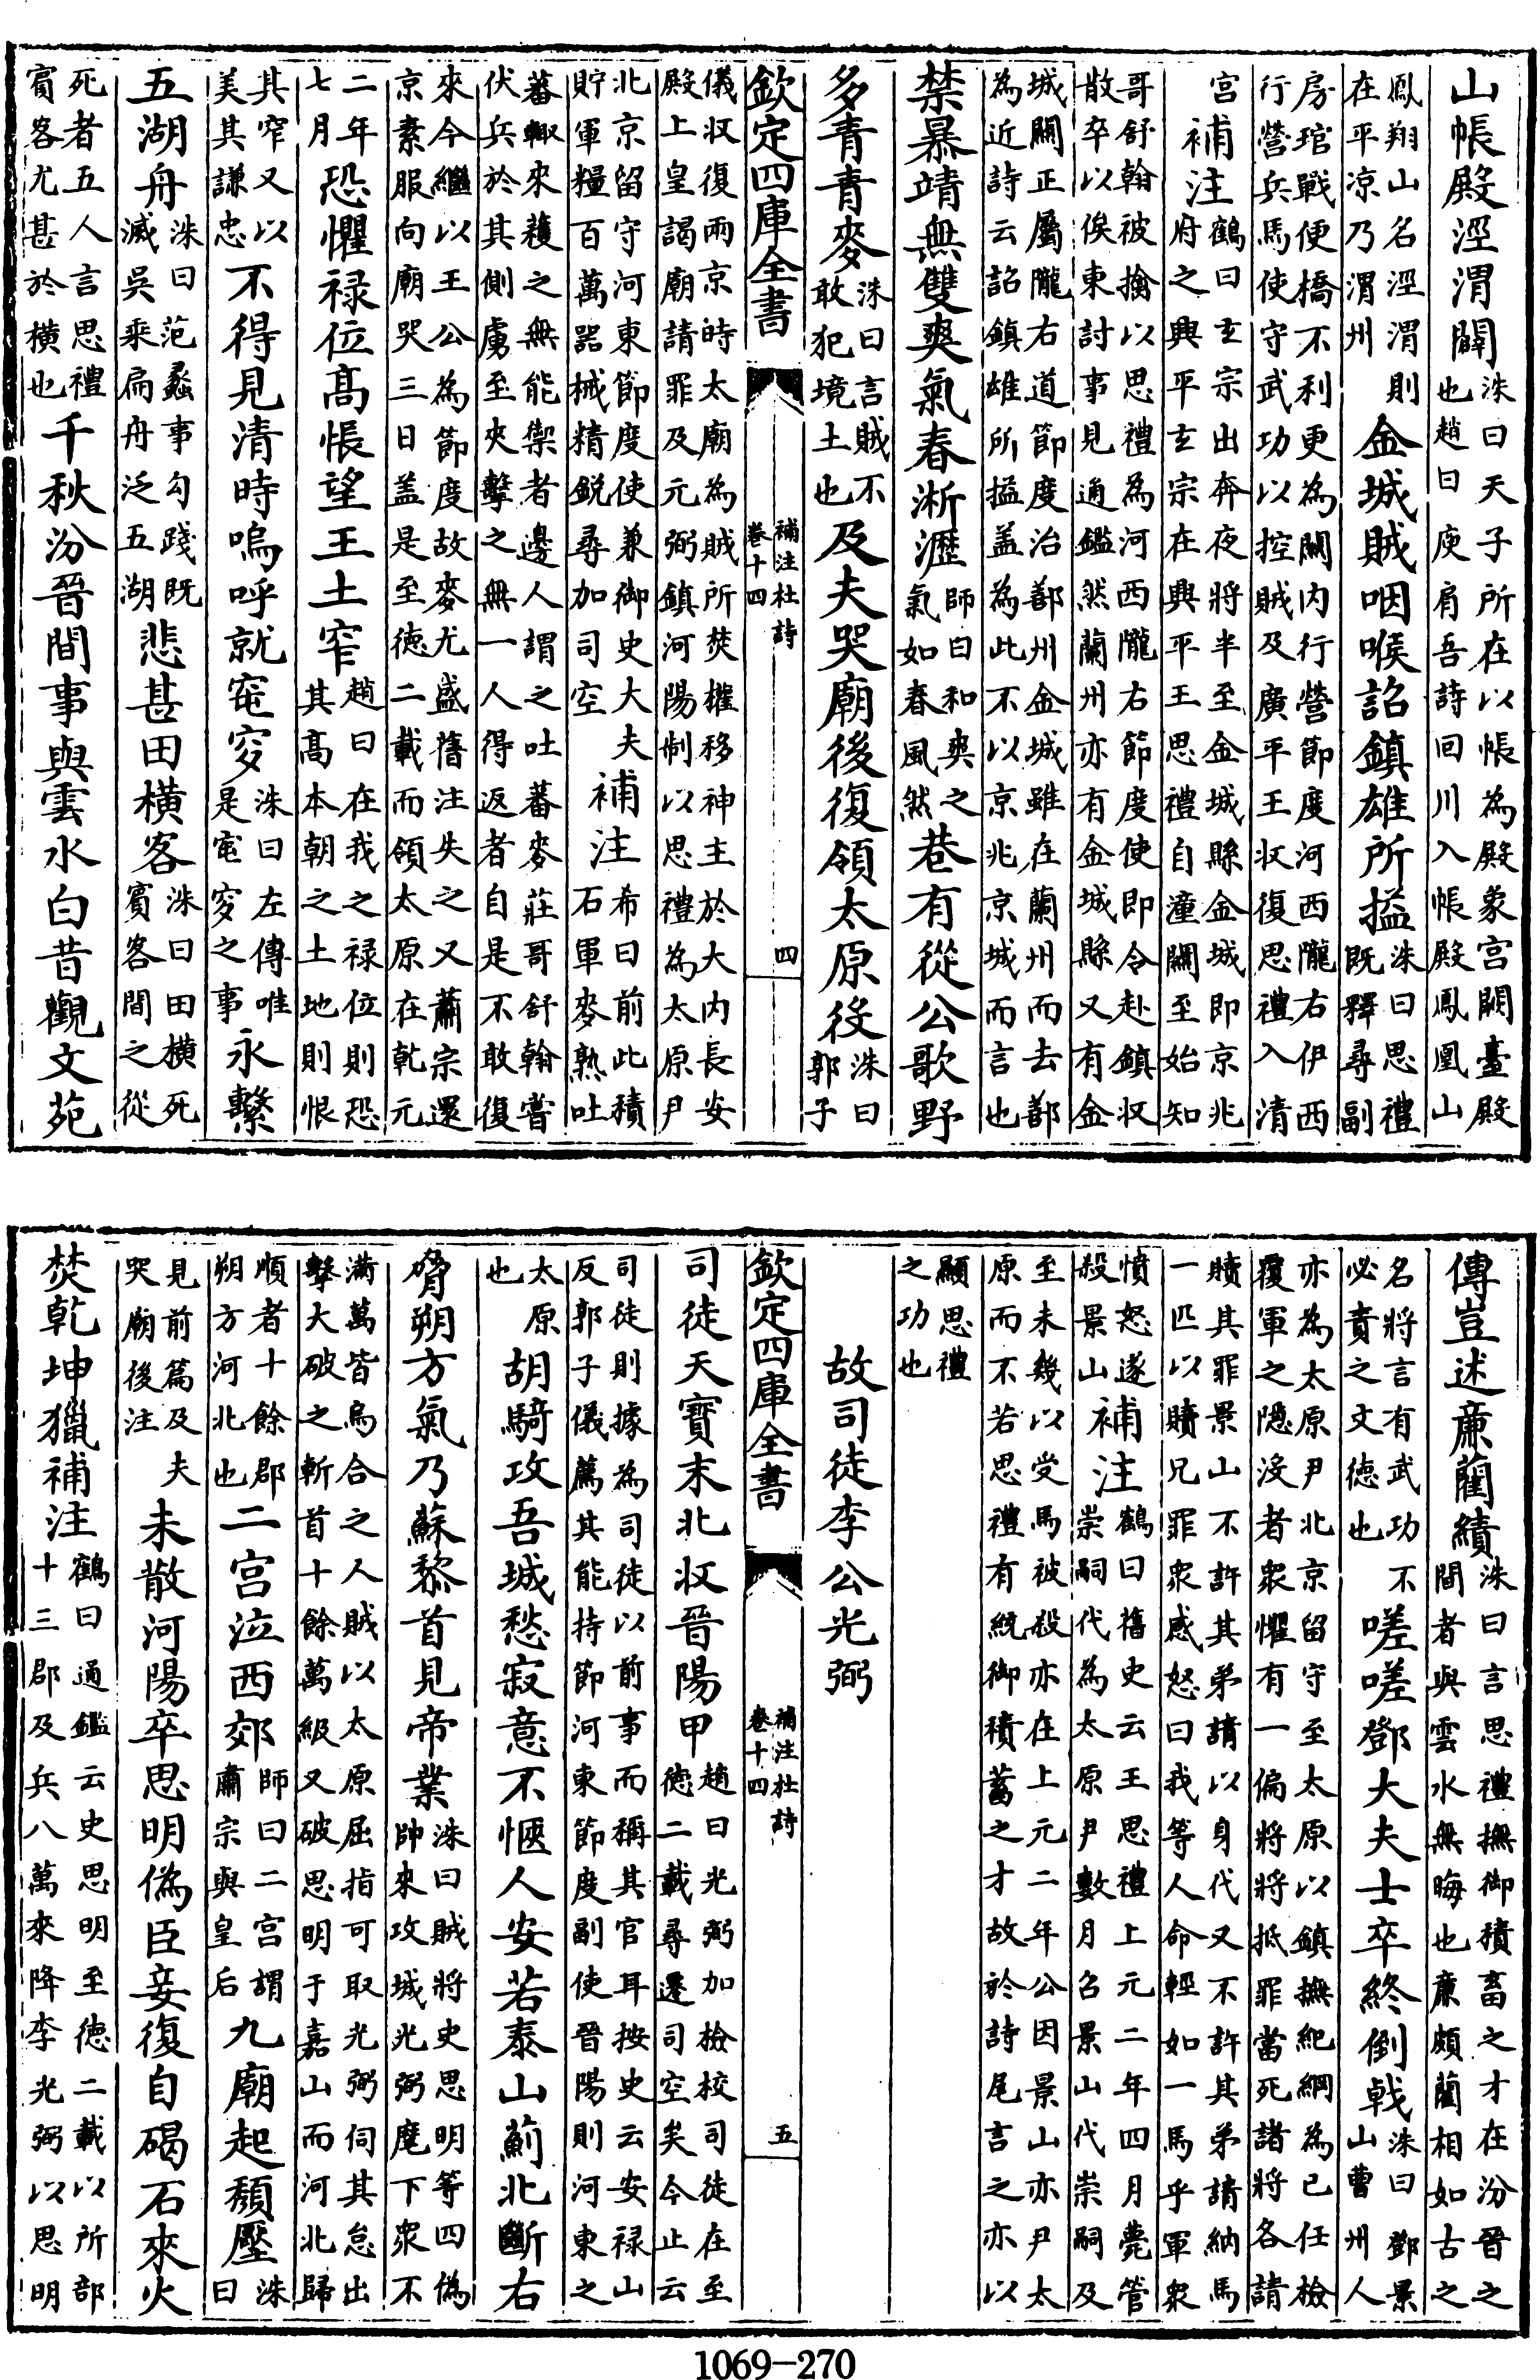 山帳殿涇渭闢洙曰天子所在以帳為殿象宫闕臺殿
也趙曰庾肩吾詩回川入帳殿鳳凰山
鳳翔山名涇渭則
在平凉乃渭州金城賊咽喉詔鎮雄所搤洙曰思禮
既釋尋副
房琯戰便橋不利更為關内行營節度河西隴右伊西
行營兵馬使守武功以控賊及廣平王収復思禮入清
宫補注鶴曰玄宗出奔夜將半至金城縣金城即京兆
府之興平玄宗在興平王思禮自潼關至始知
哥舒翰被擒以思禮為河西隴右節度使即令赴鎮収
散卒以俟東討事見通鑑然蘭州亦有金城縣又有金
城關正屬隴右道節度治鄯州金城雖在蘭州而去鄯
為近詩云詔鎮雄所搤盖為此不以京兆京城而言也
禁暴靖無雙爽氣春淅瀝師曰和爽之
氣如春風然巷有從公歌野
多青青麥洙曰言賊不
敢犯境土也及夫哭廟後復領太原役洙曰
郭子
欽定四庫全書
補注杜詩
卷十四
四
儀収復兩京時太廟為賊所焚權移神主於大内長安
殿上皇謁廟請罪及元弼鎮河陽制以思禮為太原尹
北京留守河東節度使兼御史大夫
貯軍糧百萬器械精鋭尋加司空補注希曰前此積
石軍麥熟吐
蕃輙來穫之無能禦者邊人謂之吐蕃麥莊哥舒翰嘗
伏兵於其側虜至夾擊之無一人得返者自是不敢復
來今繼以王公為節度故麥尤盛舊注失之又蕭宗還
京素服向廟哭三日盖是至徳二載而領太原在乾元
二年
七月恐懼禄位髙悵望王土窄趙曰在我之禄位則恐
其髙本朝之土地則恨
其窄又以
美其謙忠不得見清時嗚呼就窀穸洙曰左傳唯
是窀穸之事永繫
五湖舟洙曰范蠡事勾踐既
滅吳乘扁舟泛五湖悲甚田横客洙曰田横死
賓客間之從
死者五人言思禮
賓客尤甚於横也千秋汾晉間事與雲水白昔觀文苑
傳豈述亷藺績洙曰言思禮撫御積畜之才在汾晉之
間者與雲水無晦也亷頗藺相如古之
名將言有武功不
必責之文徳也嗟嗟鄧大夫士卒終倒戟洙曰鄧景
山曹州人
亦為太原尹北京留守至太原以鎮撫紀綱為已任檢
覆軍之隠没者衆懼有一偏將將抵罪當死諸將各請
贖其罪景山不許其弟請以身代又不許其弟請納馬
一匹以贖兄罪衆感怒曰我等人命輕如一馬乎軍衆
憤怒遂
殺景山補注鶴曰舊史云王思禮上元二年四月薨管
崇嗣代為太原尹數月召景山代崇嗣及
至未幾以受馬被殺亦在上元二年公因景山亦尹太
原而不若思禮有統御積蓄之才故於詩尾言之亦以
顯思禮
之功也
故司徒李公光弼
欽定四庫全書
補注杜詩
卷十四
五
司徒天寶末北収晉陽甲趙曰光弼加檢校司徒在至
徳二載尋遷司空矣今止云
司徒則據為司徒以前事而稱其官耳按史云安禄山
反郭子儀薦其能持節河東節度副使晉陽則河東之
太原
也胡騎攻吾城愁寂意不愜人安若泰山薊北斷右
脅朔方氣乃蘇黎首見帝業洙曰賊將史思明等四偽
帥來攻城光弼麾下衆不
滿萬皆烏合之人賊以太原屈指可取光弼伺其怠出
擊大破之斬首十餘萬級又破思明于嘉山而河北歸
順者十餘郡
朔方河北也二宫泣西郊師曰二宫謂
肅宗與皇后九廟起頽壓洙
曰
見前篇及夫
哭廟後注未散河陽卒思明偽臣妾復自碣石來火
焚乾坤獵補注鶴曰通鑑云史思明至徳二載以所部
十三郡及兵八萬來降李光弼以思明
1069-270